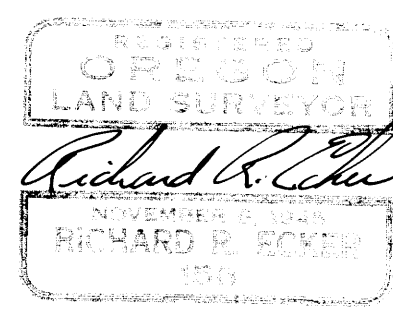 REGISTERED
OREGON
LAND SURVEYOR
Richard R. Ecker
NOVEMBER
RICHARD R. ECKER